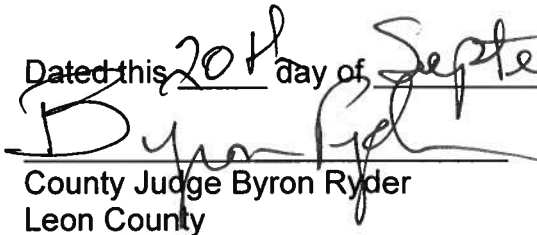 Dated this 20th day of Septe
Byron Ryder
County Judge Byron Ryder
Leon County